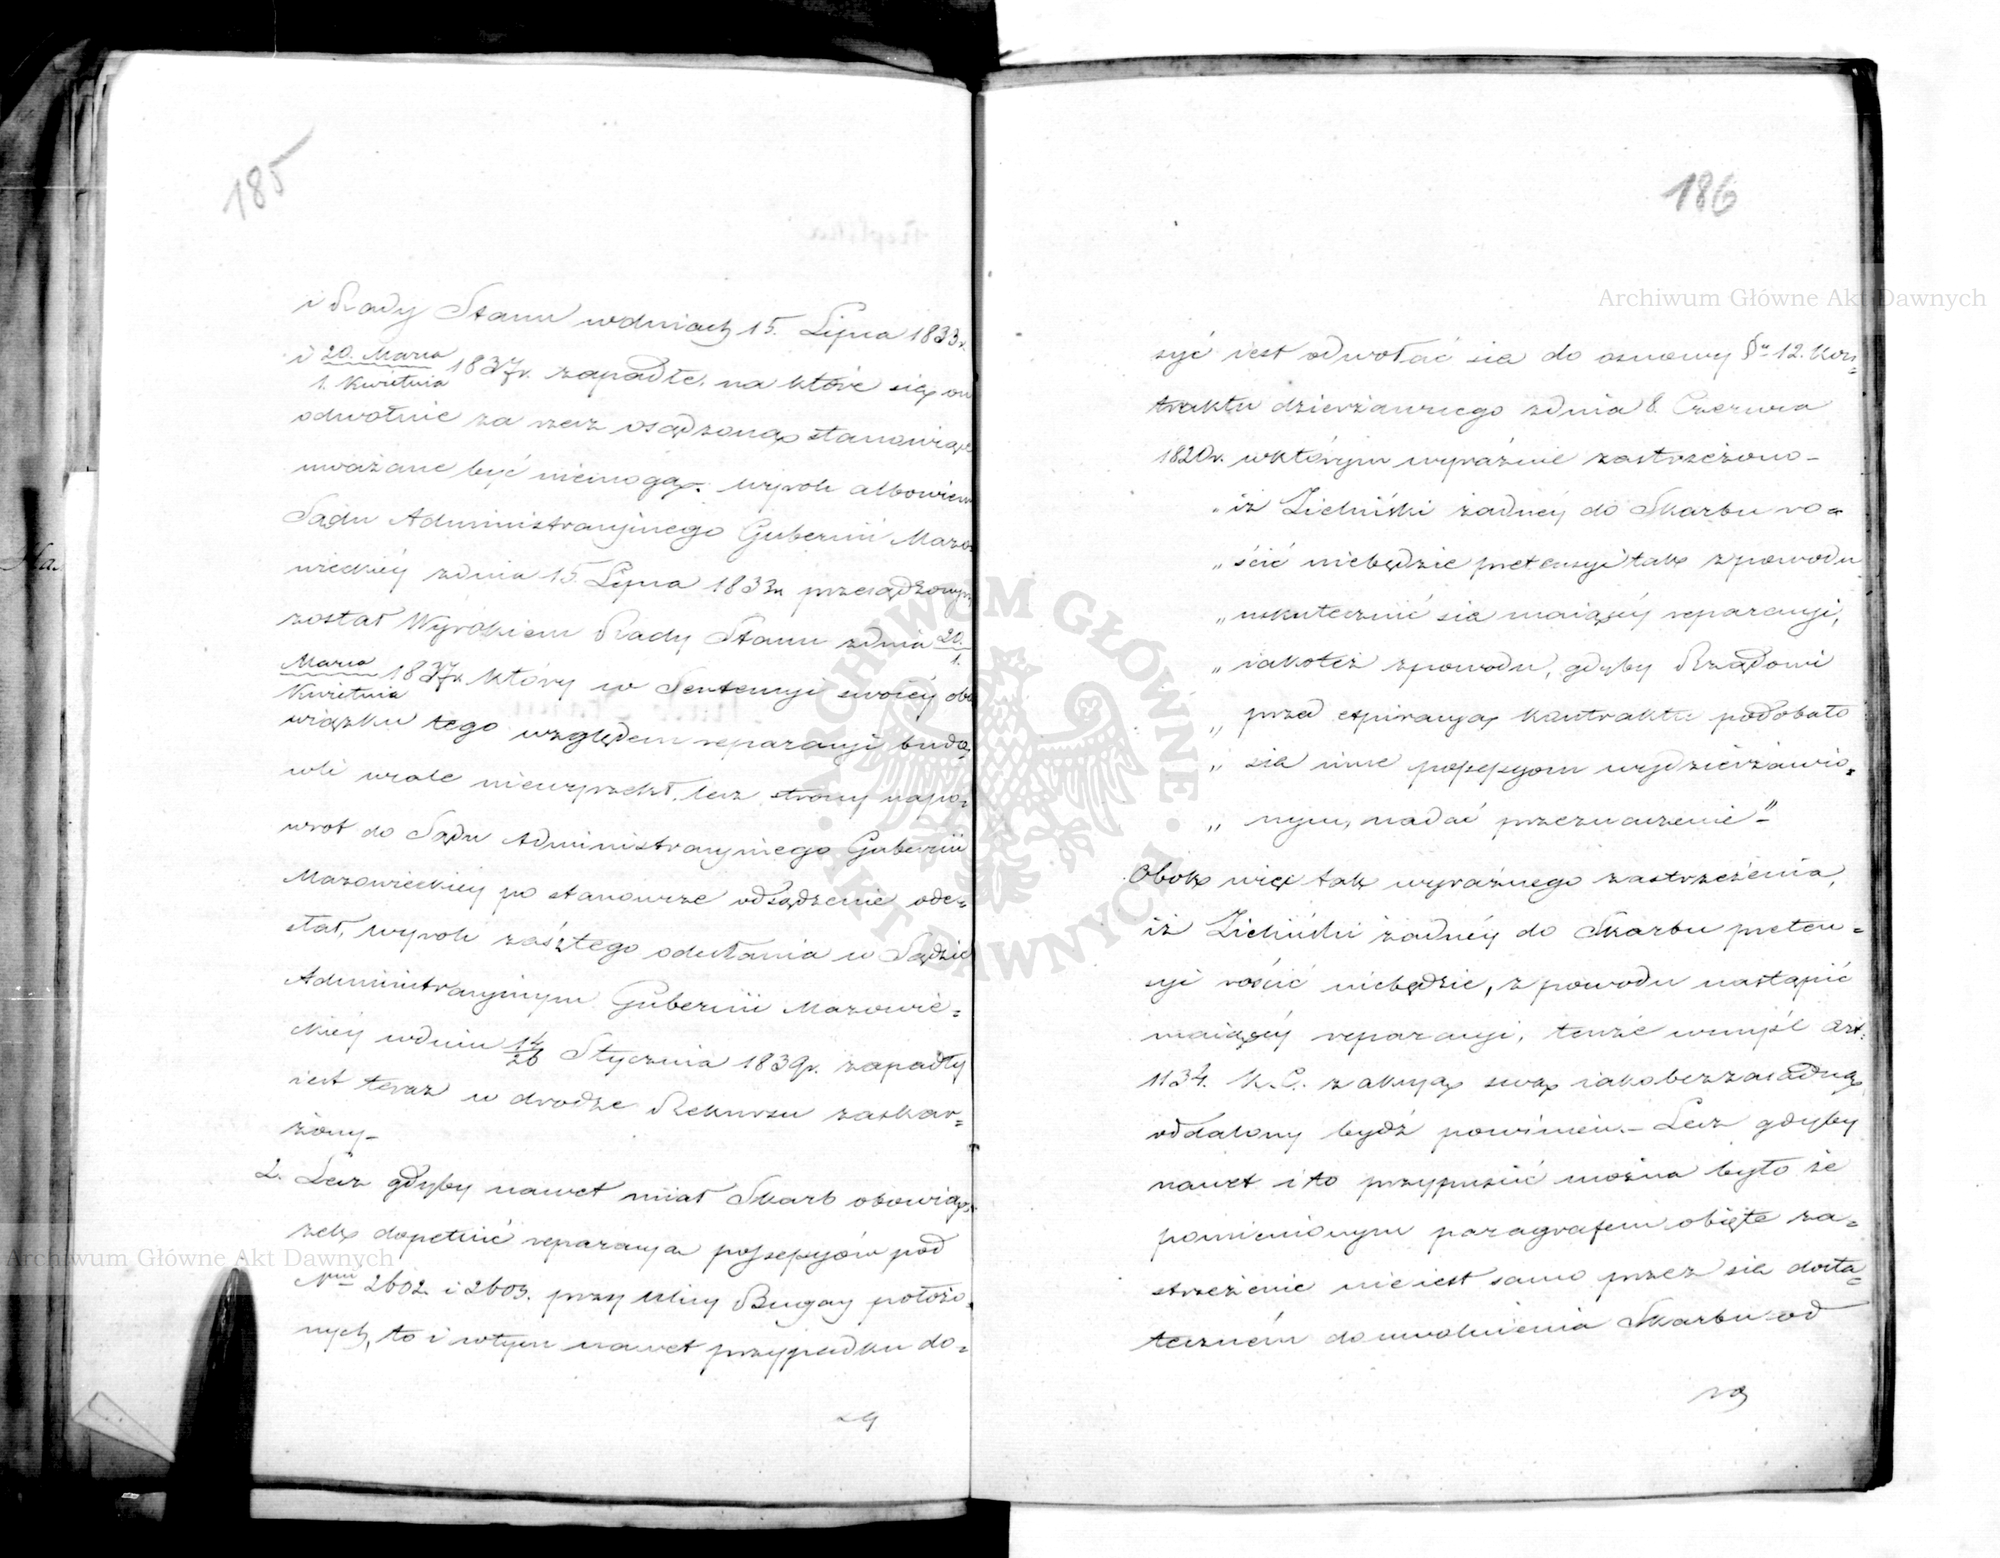 185
i Rady Stanu wdniach 15. Lipca 1833r.
i 20. Marca / 1. Kwietnia 1837r. zapadłe, na które się on
odwołuie za rzecz osądzoną stanowiące
uważane być niemogą. wyrok albowiem
Sądu Administracyjnego Gubernii Mazo-
wieckiéy zdnia 15. Lipca 1833r. przesądzonym
został Wyrokiem Rady Stanu zdnia 20. / 1.
Marca / Kwietnia 1837r. który w Sentencyi swoiéy obo
wiązku tego względem reparacyi budo-
wli wcale niewyrzekł, lecz strony napo=
wrot do Sądu Administracyinego Gubernii
Mazowieckiey po stanowcze odsądzenie ode=
słał, wyrok zaś z tego odesłania w Sądzie
Administracyinym Gubernii Mazowie=
ckiéy wdniu 14/26 Stycznia 1839r. zapadły
iest teraz w drodze Rekursu zaskar=
żony.-
2. Lecz gdyby nawet miał Skarb obowią-
zek dopełnić reparacya possessyów pod
Nmi 2602. i 2603. przy Ulicy Bugay położo-
nych, to i wtym nawet przypadku do=
186
syć iest odwołać się do osnowy §u 12. Kon=
traktu dzierżawnego zdnia 8. Czerwca
1820r. wktórym wyraźnie zastrzeżono-
„ iż Zieliński żadnéy do Skarbu ro=
„ ścić niebędzie pretensyi tak z powodu
„ uskutecznić się maiącéy reparacyi,
„ iakoteż zpowodu, gdyby Rządowi
„ przed expiracyą kontraktu podobało
„ się inne possessyom wydzierżawio=
„ nym, nadać przeznaczenie"-
Obok więc tak wyraźnego zastrzeżenia,
iż Zieliński żadnéy do Skarbu preten=
syi rościć niebędzie, z powodu nastąpić
maiącéy reparacyi, tenże wmyśl Art:
1134. K.C. z akcyą swą iako bezzasadną
oddalony bydź powinien.- Lecz gdyby
nawet i to przypuścić można było że
pomienionym paragrafem obięte za=
strzeżenie nie iest samo przez się dosta=
teczném do uwolnienia Skarbu od
Archiwum Główne Akt Dawnych
Archiwum Główne Akt Dawnych
ARCHIWUM GŁÓWNE AKT DAWNYCH